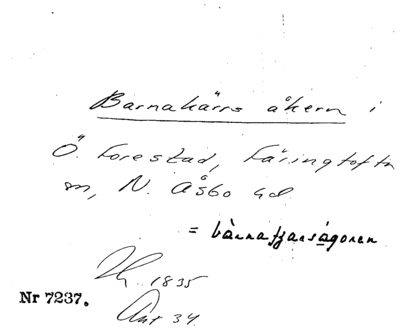 Barnakärrs åkern i
Ö. Forestad, Färingtofta
sn, N. Åsbo hd
= bàrnaʃʃarságoren
1835
Nr 7237.
Akt 34.